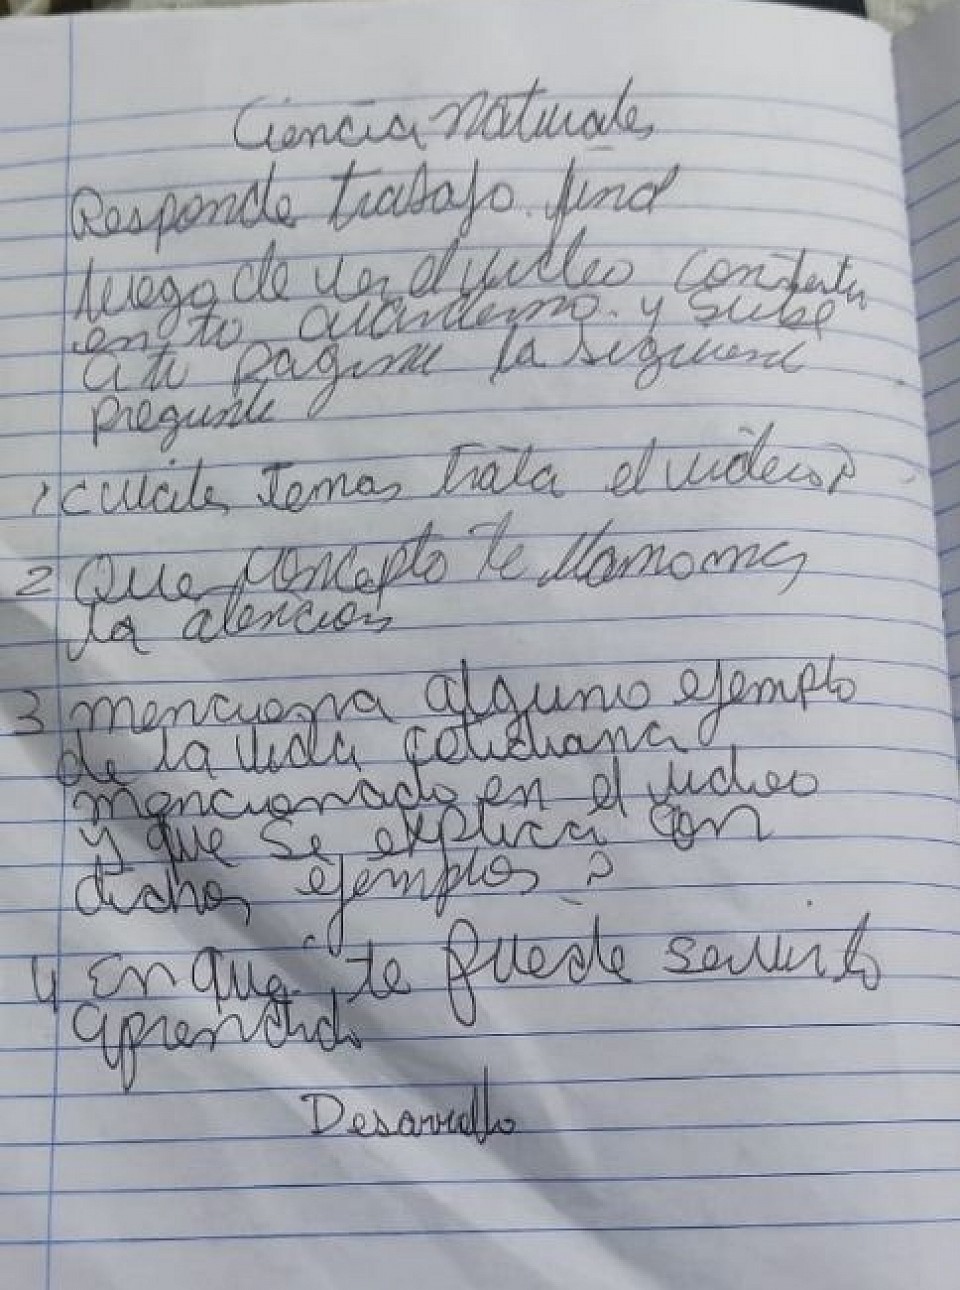 Ciencia Naturales
Responde trabajo final
luego de ver el video contesta
en tu cuaderno y sube
a tu pagina la siguiente
pregunta
1 cuales temas trata el video?
2 Que concepto te llamo mas
la atencion
3 menciona alguno ejemplo
de la vida cotidiana
mencionado en el video
y que se explica con
dichos ejemplos?
4 En que te puede servir lo
aprendido
Desarrollo